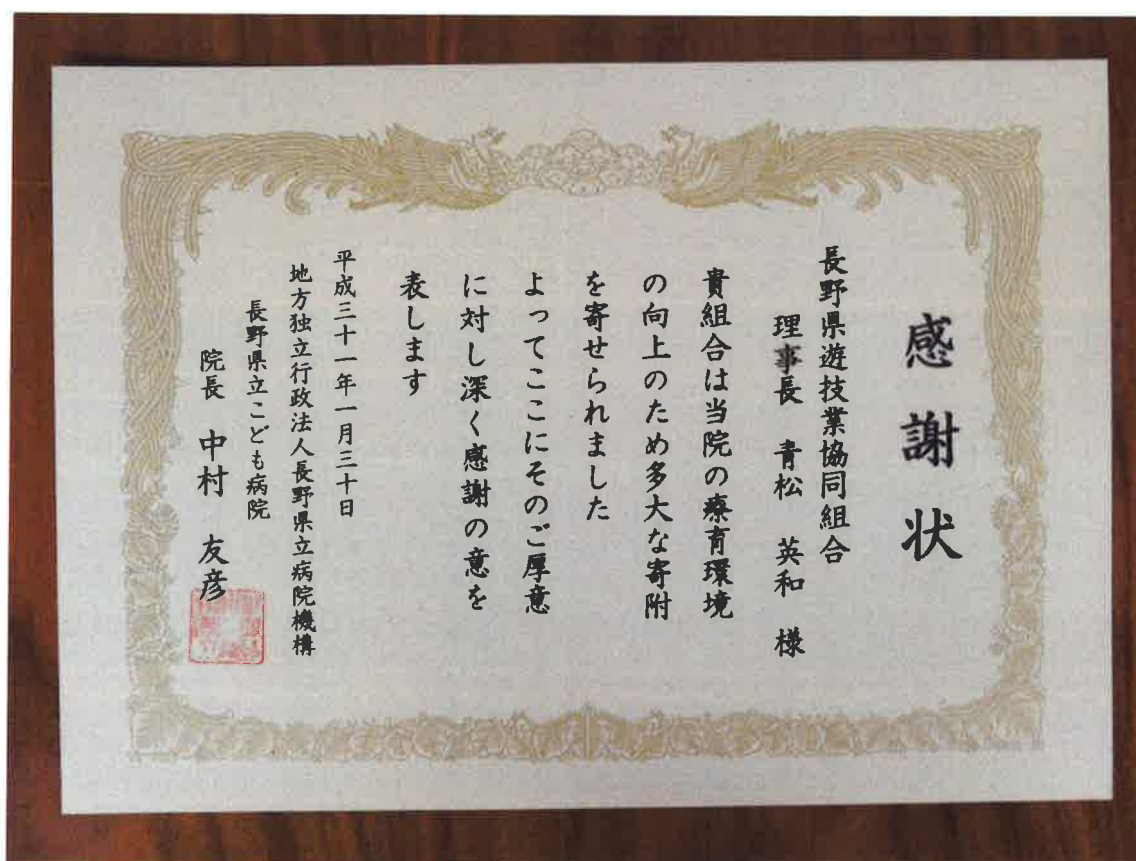 感謝状
長野県遊技業協同組合
理事長 青松 英和 様
貴組合は当院の療育環境
の向上のため多大な寄附
を寄せられました
よってここにそのご厚意
に対し深く感謝の意を
表します
平成三十一年一月三十日
地方独立行政法人長野県立病院機構
長野県立こども病院
院長 中村 友彦